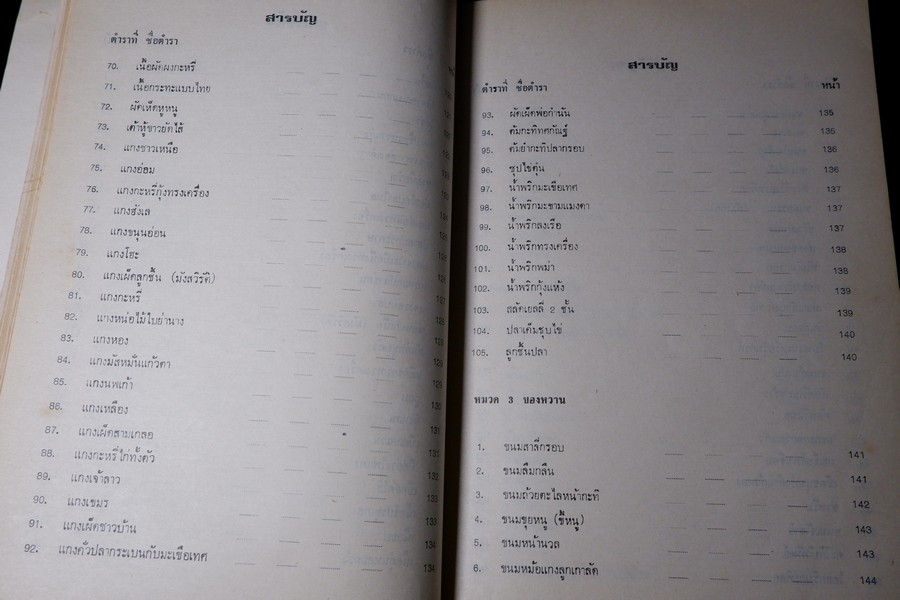 สารบัญ
ตำราที่ ชื่อตำรา
70. เนื้อผัดผงกะหรี่
71. เนื้อกระทะแบบไทย
72. ผัดเห็ดหูหนู
73. เต้าหู้ขาวยัดไส้
74. แกงชาวเหนือ
75. แกงอ่อม
76. แกงกะหรี่กุ้งทรงเครื่อง
77. แกงฮังเล
78. แกงขนุนอ่อน
79. แกงโฮะ
80. แกงเผ็ดลูกชิ้น (มังสวิรัติ)
81. แกงกะหรี่
82. แกงหน่อไม้ใบย่านาง
83. แกงหอง
84. แกงมัสหมั่นแก้วตา
85. แกงนพเก้า
86. แกงเหลือง 130
87. แกงเผ็ดสามเกลอ 131
88. แกงกะหรี่ไก่ทั้งตัว 131
89. แกงเจ้าลาว 132
90. แกงเขมร 133
91. แกงเผ็ดชาวบ้าน 133
92. แกงคั่วปลากระเบนกับมะเขือเทศ 134
สารบัญ
ตำราที่ ชื่อตำรา หน้า
93. ผัดเผ็ดพ่อกำนัน 135
94. ต้มกะทิทศกัณฐ์ 135
95. ต้มยำกะทิปลากรอบ 136
96. ซุปไข่ตุ๋น 136
97. น้ำพริกมะเขือเทศ 137
98. น้ำพริกมะขามแมงดา 137
99. น้ำพริกลงเรือ 137
100. น้ำพริกทรงเครื่อง 138
101. น้ำพริกพม่า 138
102. น้ำพริกกุ้งแห้ง 139
103. สลัดเยลลี่ 2 ชั้น 139
104. ปลาเค็มชุบไข่ 140
105. ลูกชิ้นปลา 140
หมวด 3 ของหวาน
1. ขนมสาลี่กรอบ 141
2. ขนมลืมกลืน 141
3. ขนมถ้วยตะไลหน้ากะทิ 142
4. ขนมขุยหนู (ขี้หนู) 143
5. ขนมหน้านวล 143
6. ขนมหม้อแกงลูกเกาลัด 144